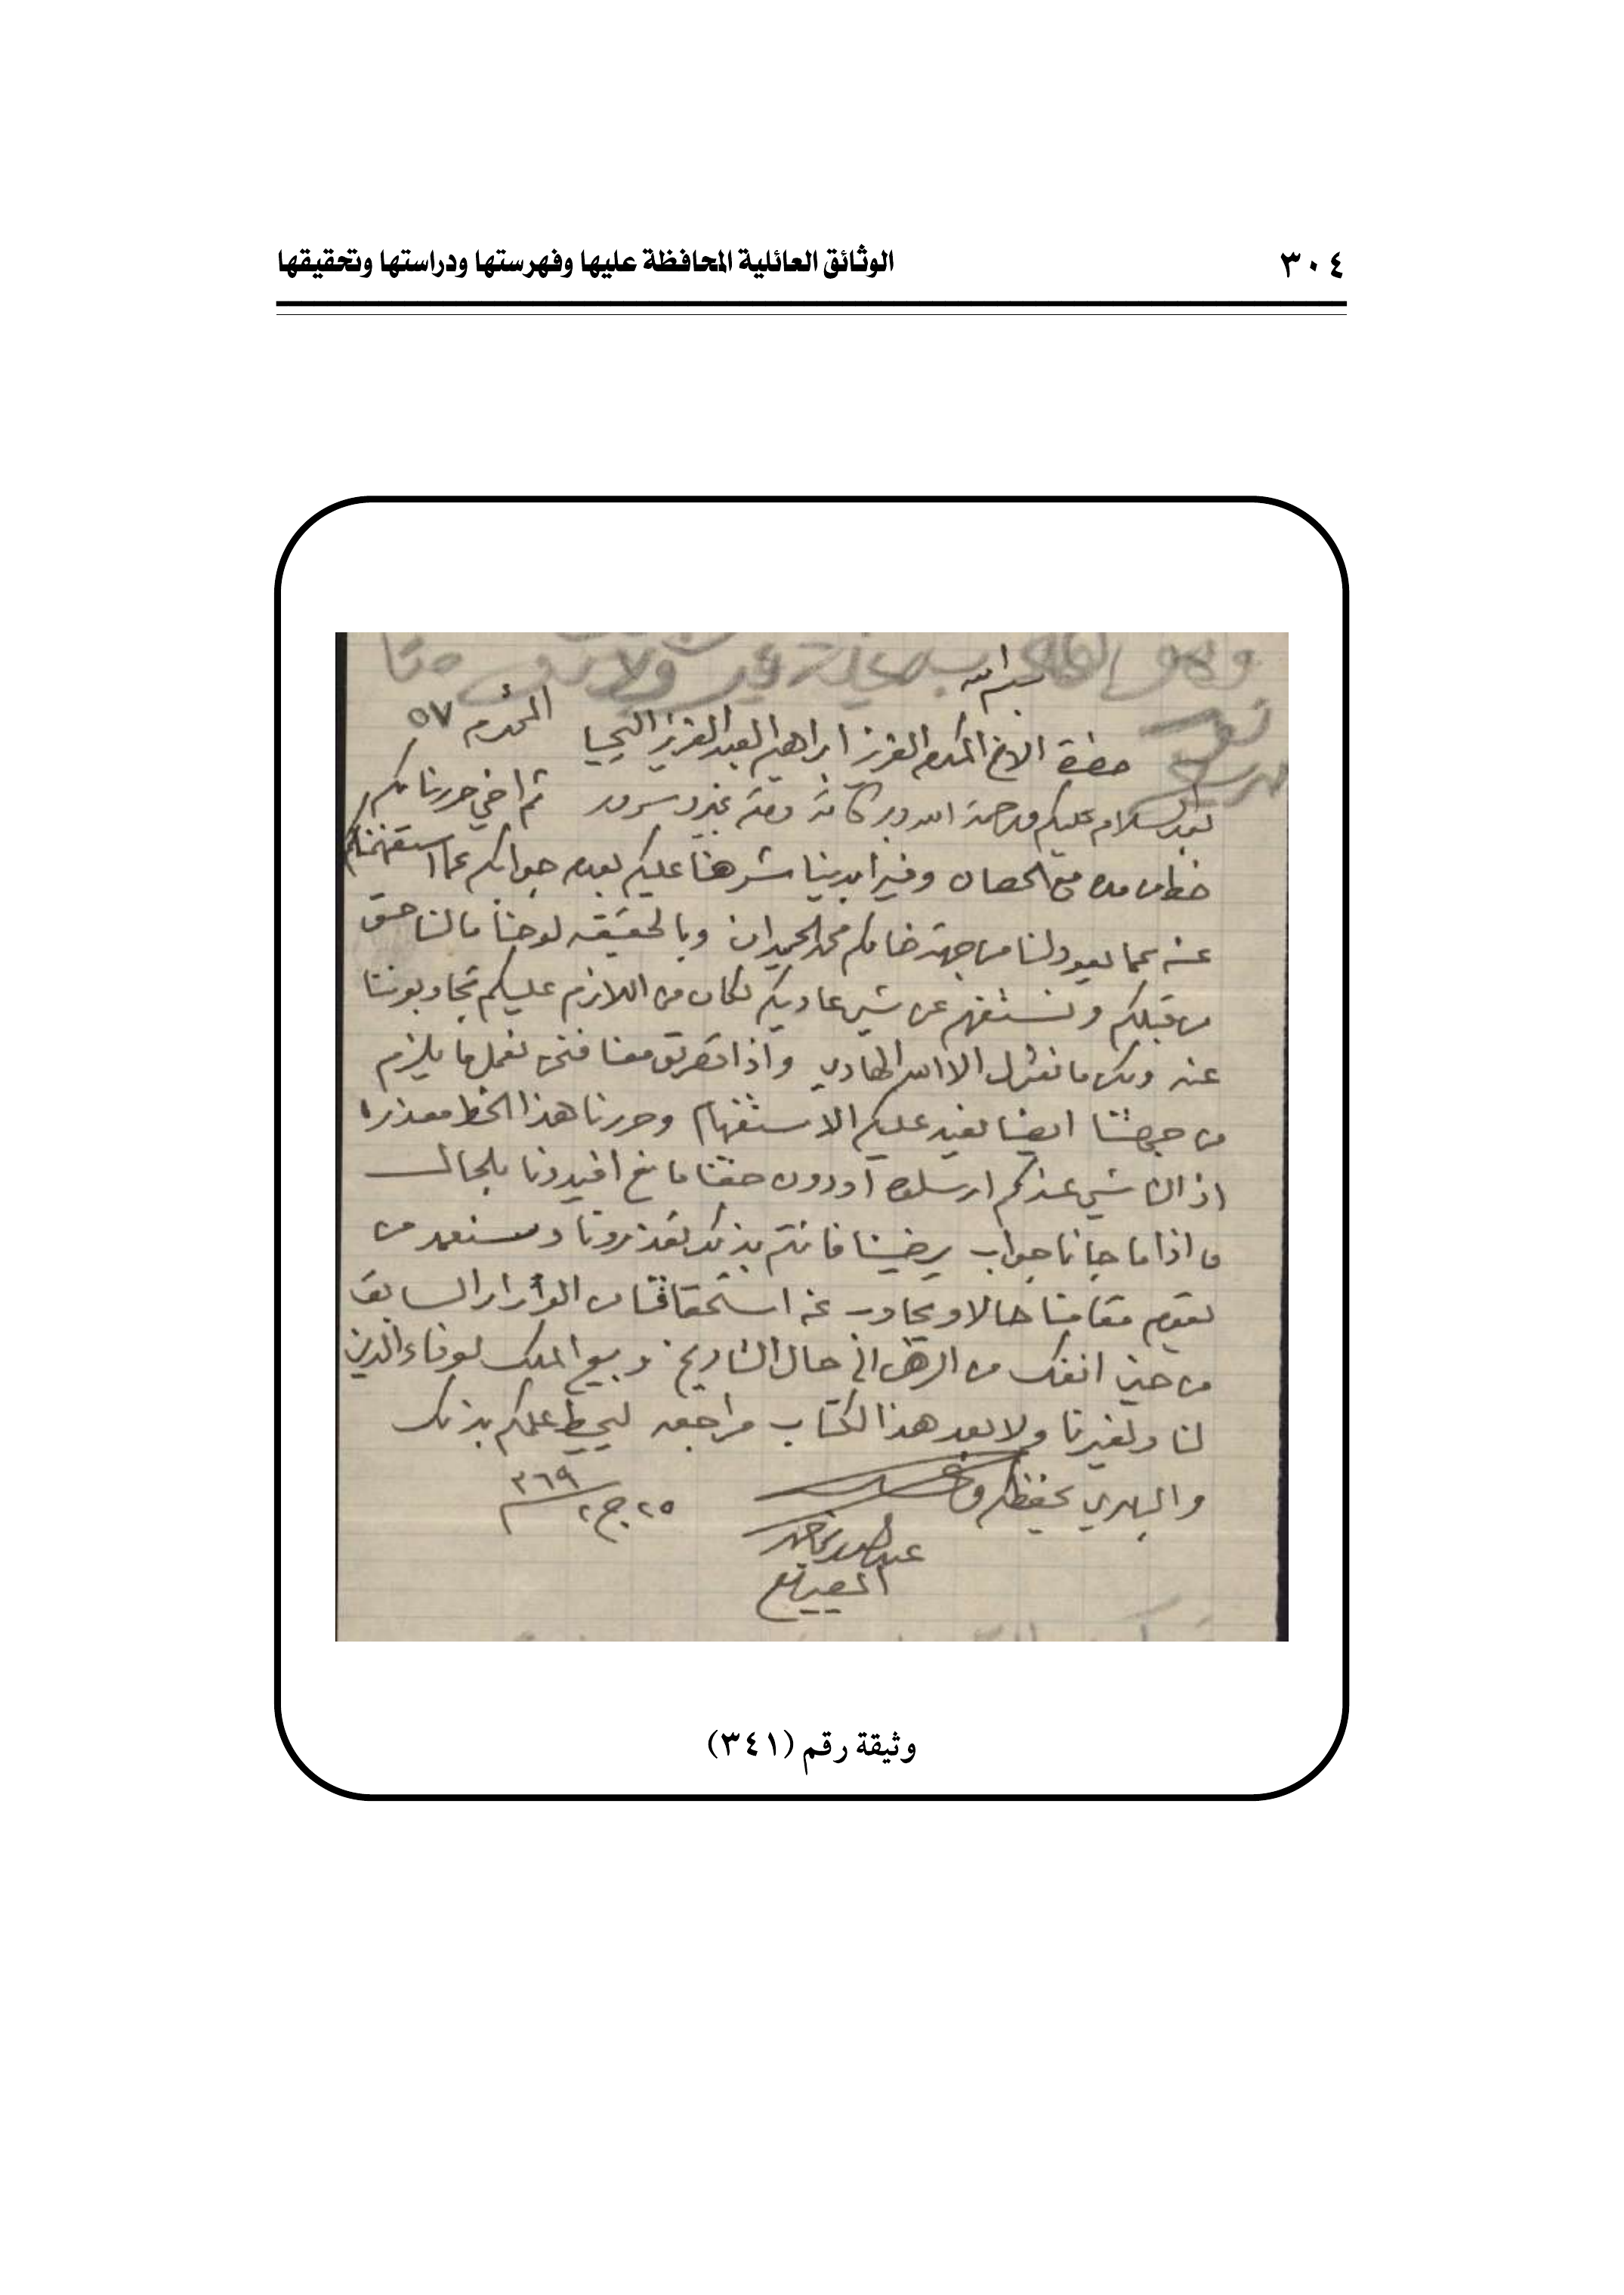 ٣٠٤
الوثائق العائلية المحافظة عليها وفهرستها ودراستها وتحقيقها
بسم الله
حضرة الاخ المكرم العزيز ابراهيم العبد العزيز اليحيا المحترم ٥٧
بعد السلام عليكم ورحمة الله وبركاته بخير وسرور ثم اخي حررنا لكم
خط من مده مع الحصان وفيه ابدينا شرهنا عليكم بعدم جوابكم عما استفهمناكم
عنه عما يعود لنا من جهة محمد الحميدان وبالحقيقه لو حنا ما لنا حق
من قبلكم ونستفهم عن شي عاديكم لكان من اللازم عليكم تجاوبوننا
عنه ولكن ما نقول الا الله الهادي واذا معنا فنحن نعمل ما يلزم
من جهتنا ايضا نعيد عليكم الاستفهام وحررنا هذا الخط معذره
اذ لنا شي عندكم ارسلوه او دون حقنا مانع افيدونا بالحال
واذا ما جانا جواب يرضينا فانتم بذلك تعذرونا وسنعمد من
يقوم مقامنا حالا ويجاوب عن استحقاقنا من السابق
من حين انفك من الرهن الى حال التاريخ وبيع الملك لوفاء الدين
لنا ولغيرنا ولا بعد هذا الكتاب مراجعه ليحيط علمكم بذلك
والباري يحفظكم
٢٥ ج٢ ٣٦٩
عبدالله
وثيقة رقم (٣٤١)